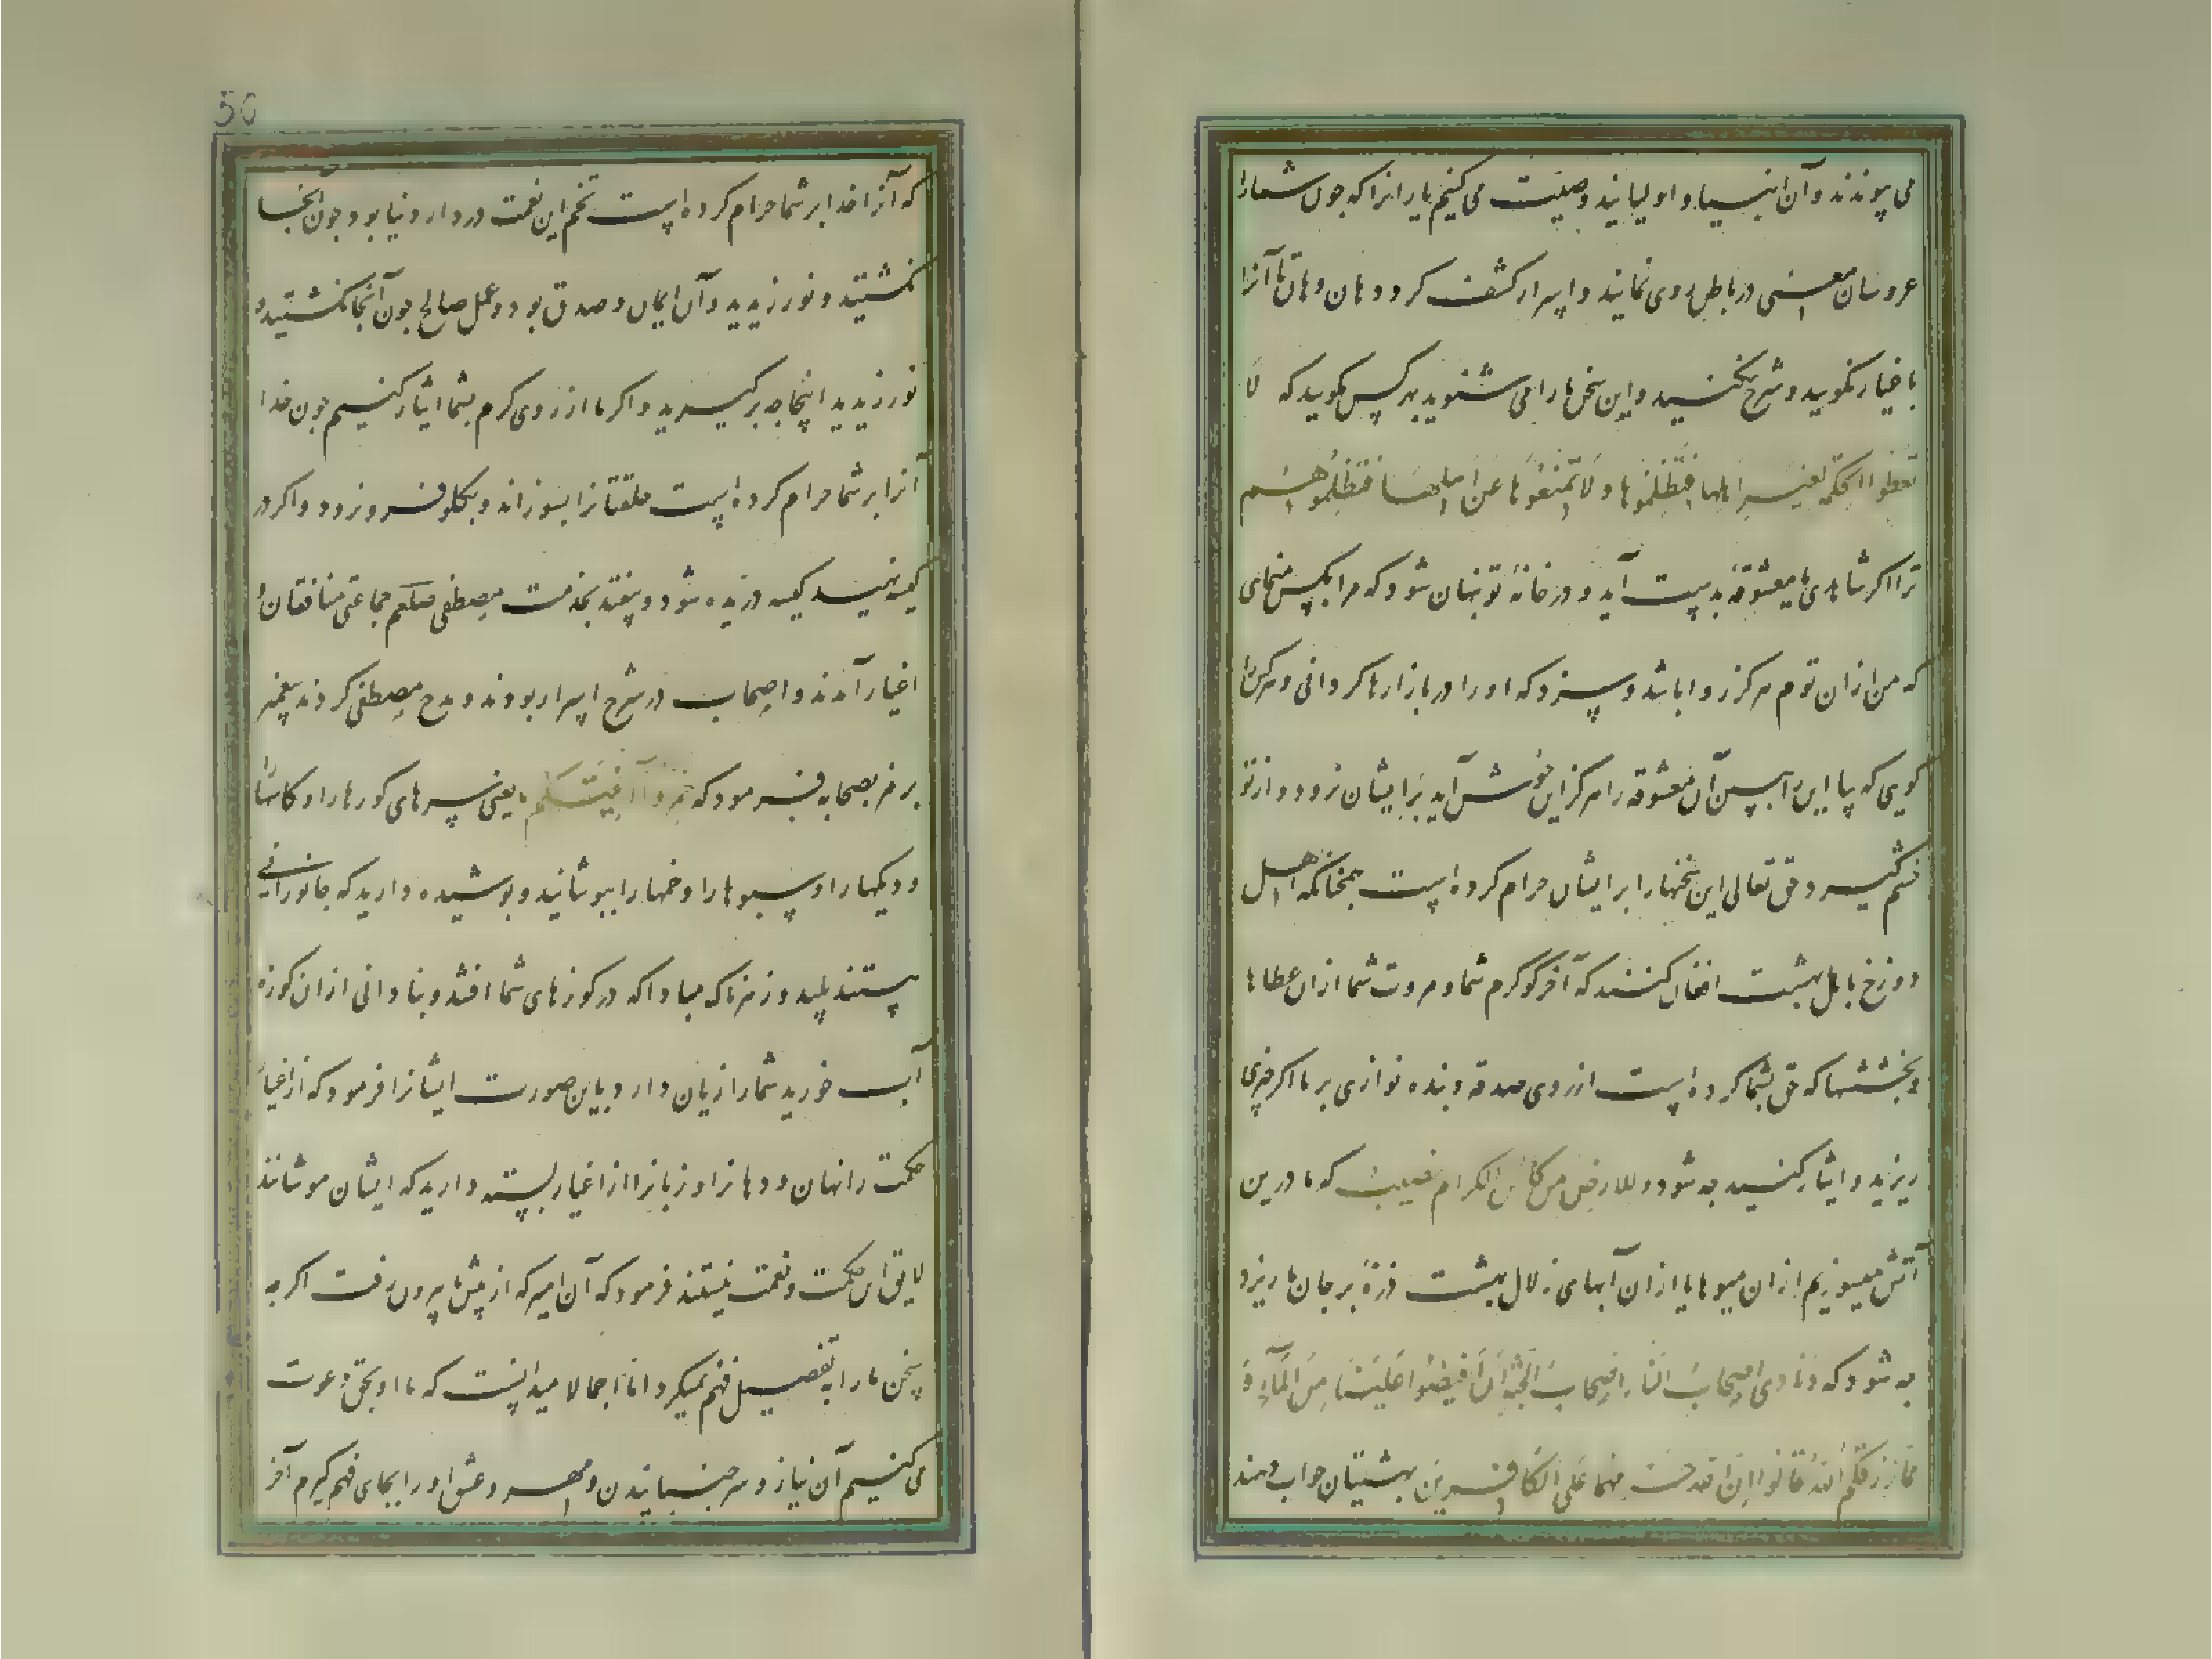 می پیوندند و آن انبیا و اولیایند وصیت می کنیم یارانرا که چون شما را
عروسان معنی در باطن روی نمایند و اسرار کشف کردد هان و هان تا آنرا
باغیار نکویید و شرح نکنید و این سخن ها را می شنوید بهر کس مکویید که لا
تعطوا الحکمة لغیر اهلها فتظلموها و لا تمنعوها عن اهلها فتظلموهم
ترا اکر شاهدی یا معشوقهٔ بدست آید و در خانهٔ تو پنهان شود که مرا بکس منمای
که من ازان توم هرکز روا باشد و سزد که او را در بازارها کردانی و هرکس را
کویی که بیا این را ببین آن معشوقه را هرکز این خوش آید بر ایشان رود و از تو
خشم کیرد حق تعالی این سخنها را بر ایشان حرام کرده است همچنانکه اهل
دوزخ باهل بهشت افغان کنند که آخر کو کرم شما و مروت شما ازان عطاها
و بخششها که حق بشما کرده است از روی صدقه و بنده نوازی بر ما اکر چیزی
ریزید و ایثار کنید چه شود و للارض من کأس الکرام نصیب که ما درین
آتش میسوزیم ازان میوها یا ازان آبهای زلال بهشت ذرهٔ بر جان ما ریزد
چه شود که و نادی اصحاب النار اصحاب الجنة ان افیضوا علینا من الماء و
مما رزقکم الله قالوا ان الله حرمهما علی الکافرین بهشتیان جواب دهند
50
که آنرا خدا بر شما حرام کرده است تخم این نعمت در دار دنیا بود چون آنجا
نکشتید و نورزیدید و آن ایمان و صدق بود و عمل صالح چون آنجا نکشتید و
نورزیدید اینجا چه بر کیرید و اکر ما از روی کرم بشما ایثار کنیم چون خدا
آنرا بر شما حرام کرده است حلقتانرا بسوزاند و بکلو فرو نرود و اکر در
کیسه نهید کیسه دریده شود و بیفتد بخدمت مصطفی صلعم جماعتی منافقان و
اغیار آمدند و اصحاب در شرح اسرار بودند و مدح مصطفی کردند پیغمبر
برمز بصحابه فرمود که خمروا آنیتکم یعنی سرهای کوزها را و کاسها را
و دیکها را و سبوها را و خمها را بپوشانید و پوشیده دارید که جانورانی
هستند پلید و زهرناک مبادا که در کوزهای شما افتد و بنادانی ازان کوزه
آب خورید شما را زیان دارد باین صورت ایشانرا فرمود که از اغیار
حکمت را نهان و دهانرا و زبانرا از اغیار بسته دارید که ایشان موشانند
لایق این حکمت و نعمت نیستند فرمود که آن امیر که از پیش ما بیرون رفت اکر چه
سخن ما را به تفصیل فهم نمیکرد اما اجمالا میدانست که ما او را بحق دعوت
می کنیم آن نیاز و سر جنبانیدن و مهر و عشق او را بجای فهم کیرم آخر